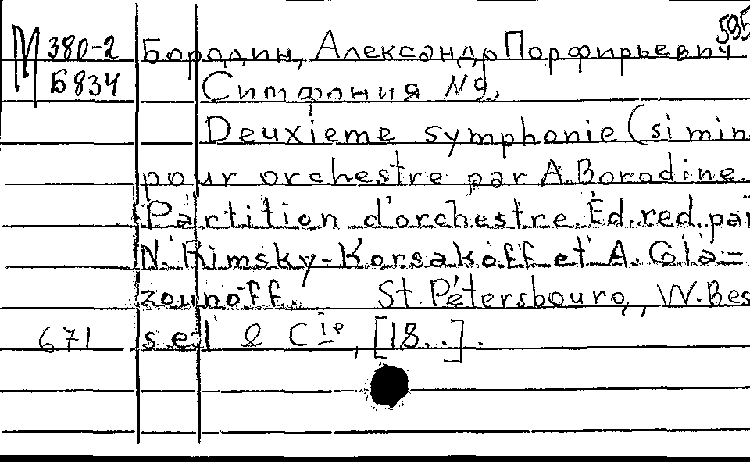 595
М 380-2 Бородин, Александр Порфирьевич
Б834 Симфония №2.
Deuxieme symphonie (si min
pour orchestre par A. Borodine.
Partition d'orchestre. Ed. red. par
N. Rimsky-Korsakoff et A. Gla=
zounoff. St. Pétersbourg, W. Bes
671 sel & Cie, [18..].